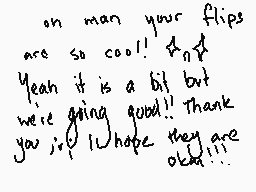 oh man your flips
are so cool!
Yeah it is a bit but
we're going good!! Thank
you I hope they are
okay!!!